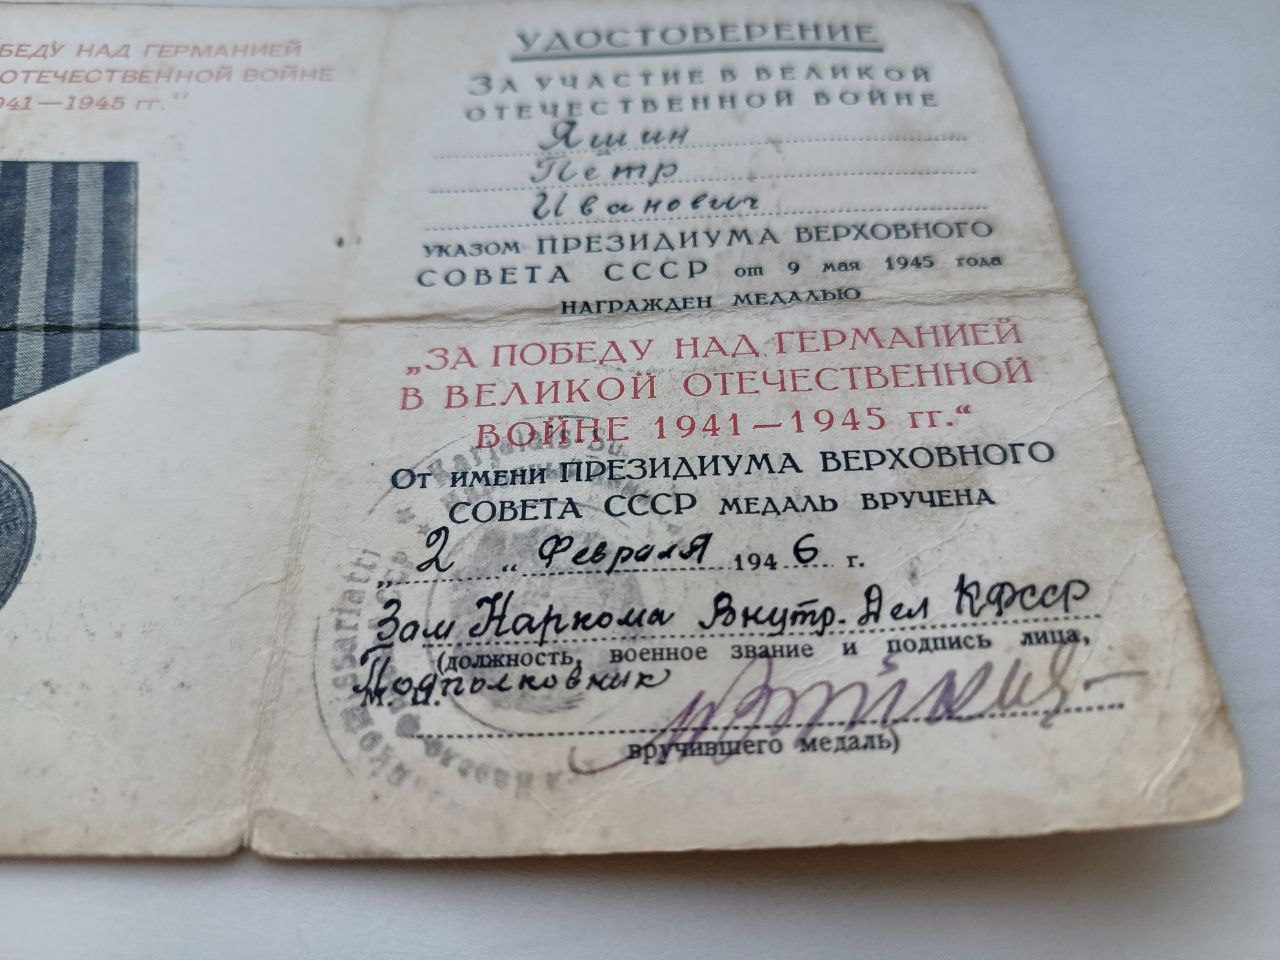 БЕДУ НАД ГЕРМАНИЕЙ
ОТЕЧЕСТВЕННОЙ ВОЙНЕ
941—1945 гг."
УДОСТОВЕРЕНИЕ
ЗА УЧАСТИЕ В ВЕЛИКОЙ
ОТЕЧЕСТВЕННОЙ ВОЙНЕ
Яшин
Пётр
Иванович
УКАЗОМ ПРЕЗИДИУМА ВЕРХОВНОГО
СОВЕТА СССР от 9 мая 1945 года
НАГРАЖДЕН МЕДАЛЬЮ
„ЗА ПОБЕДУ НАД ГЕРМАНИЕЙ
В ВЕЛИКОЙ ОТЕЧЕСТВЕННОЙ
ВОЙНЕ 1941—1945 гг.“
От имени ПРЕЗИДИУМА ВЕРХОВНОГО
СОВЕТА СССР МЕДАЛЬ ВРУЧЕНА
„2“ Февраля 1946 г.
Зам Наркома Внутр. Дел КФССР
(должность, военное звание и подпись лица,
Подполковник
М. П.
вручившего медаль)